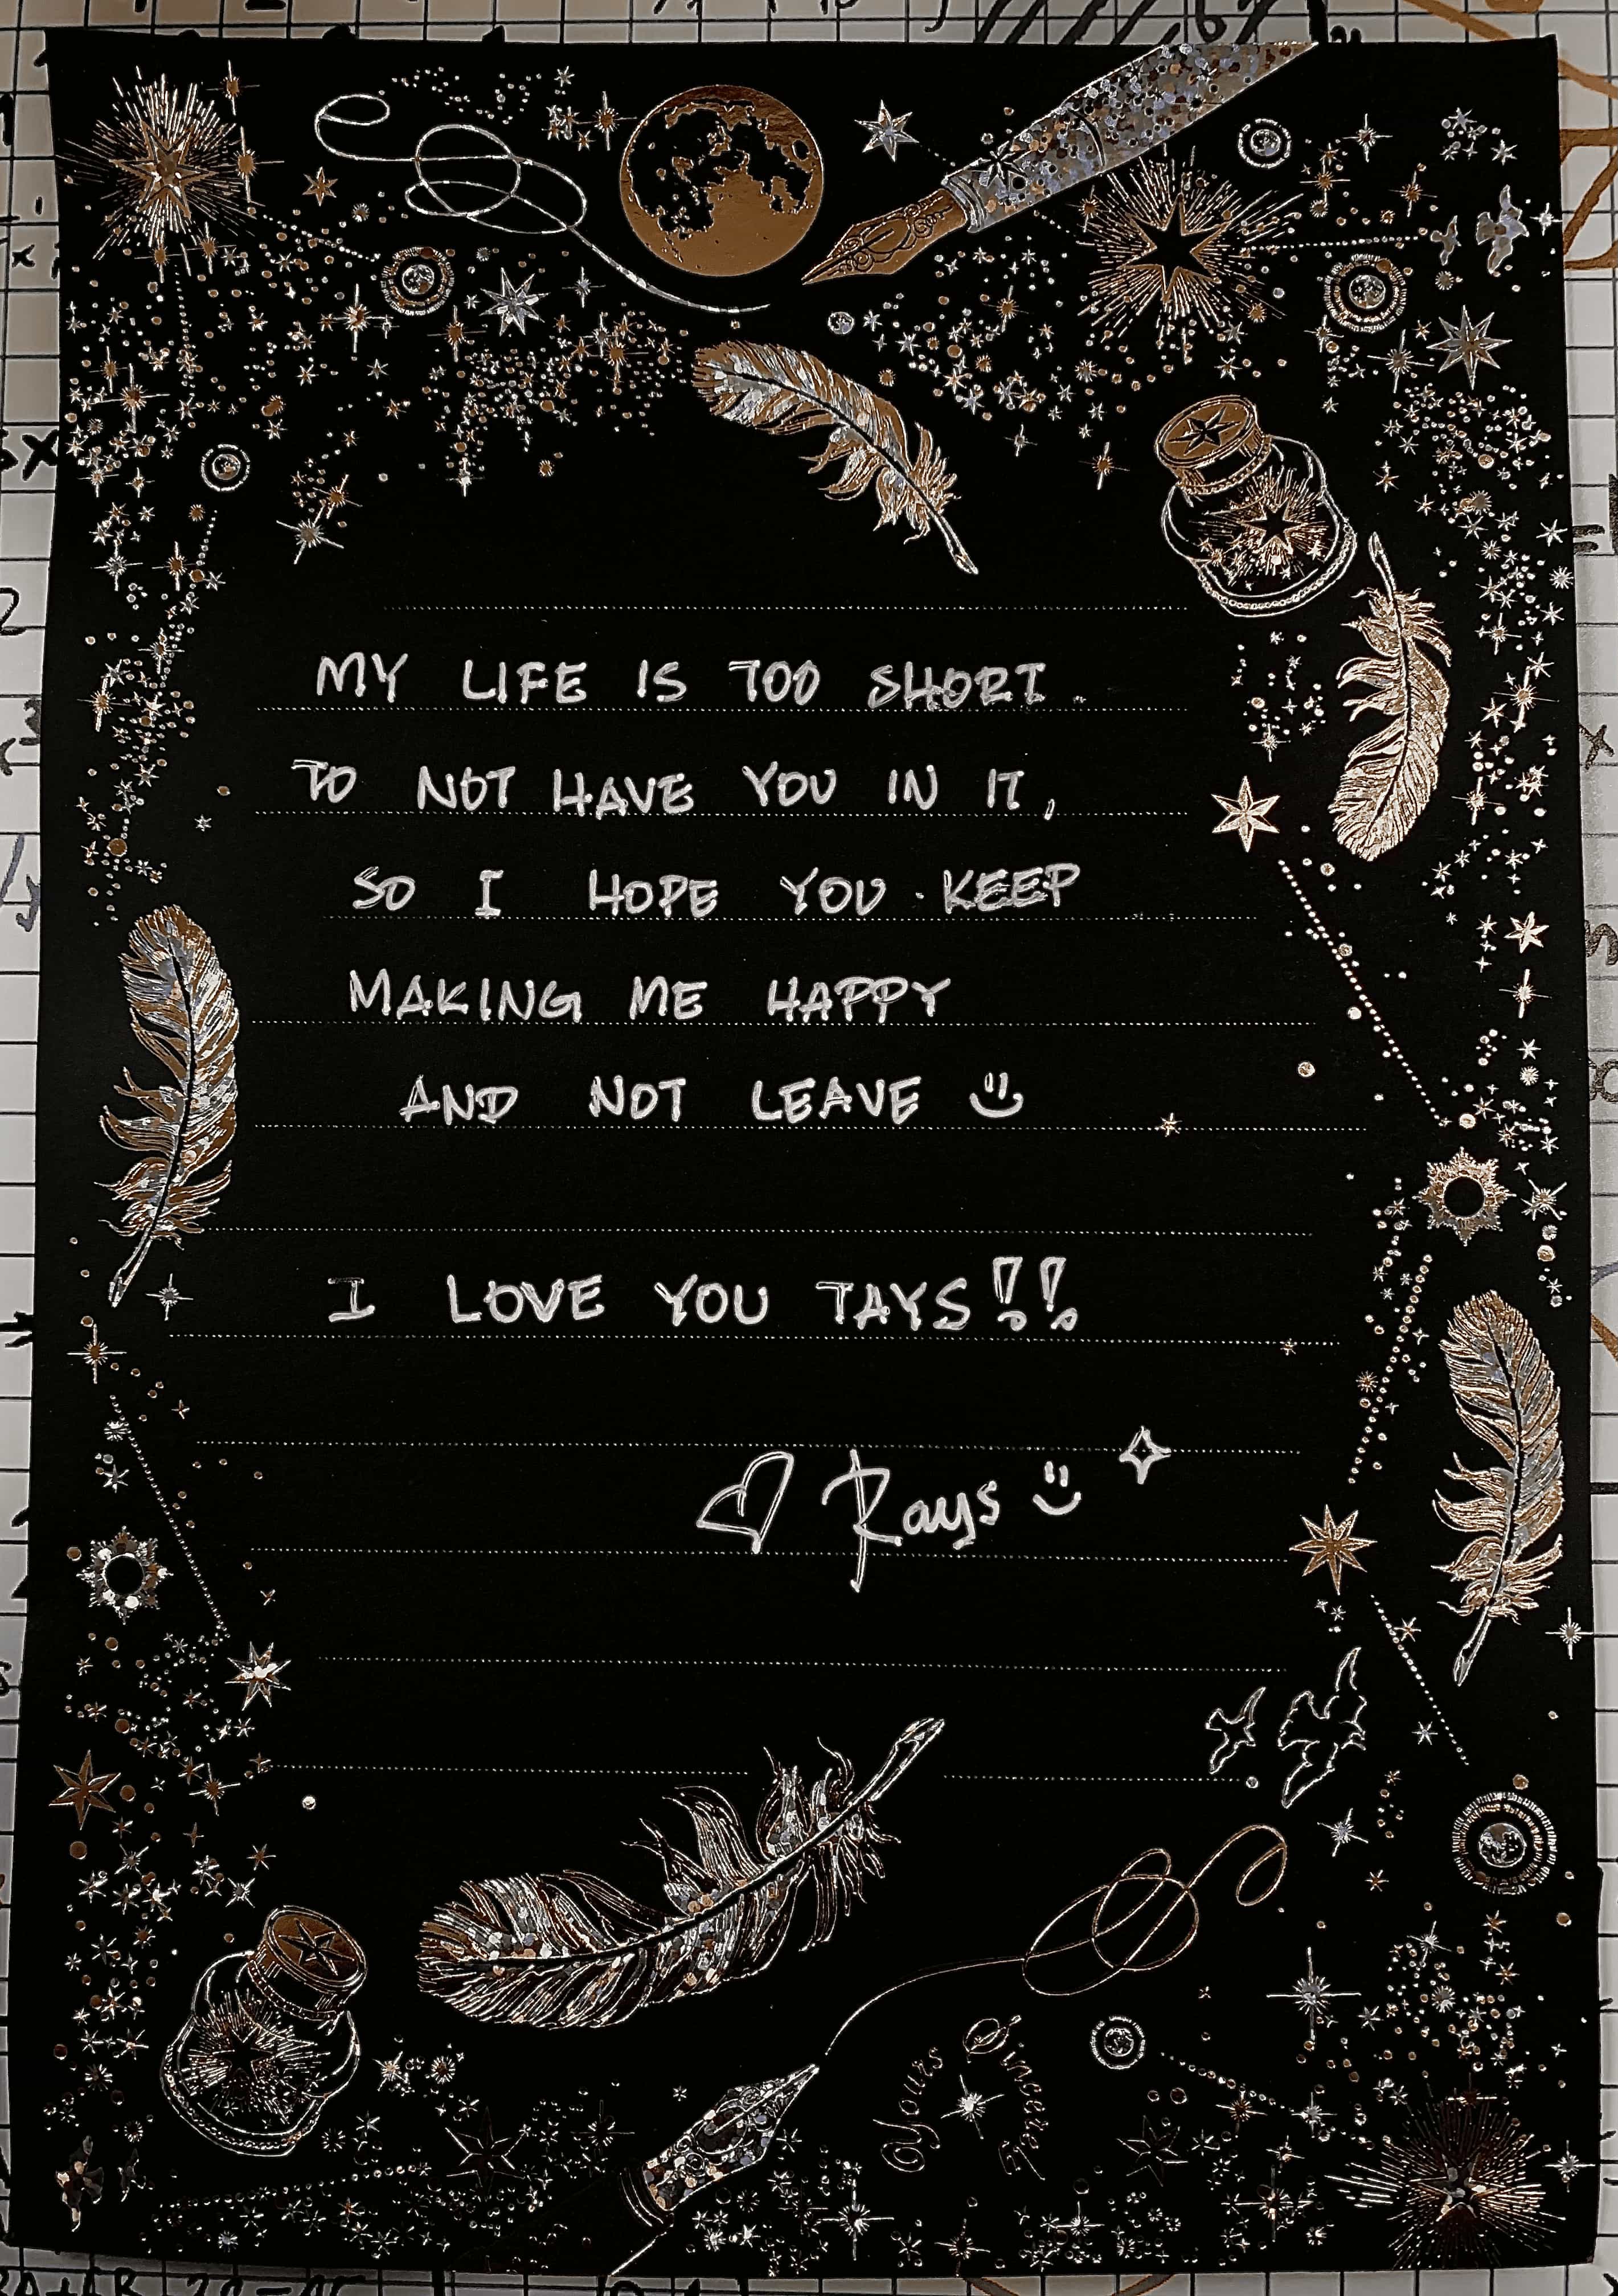 MY LIFE IS TOO SHORT
TO NOT HAVE YOU IN IT,
SO I HOPE YOU KEEP
MAKING ME HAPPY
AND NOT LEAVE
I LOVE YOU TAYS!!
Rays
Yours Sincerely